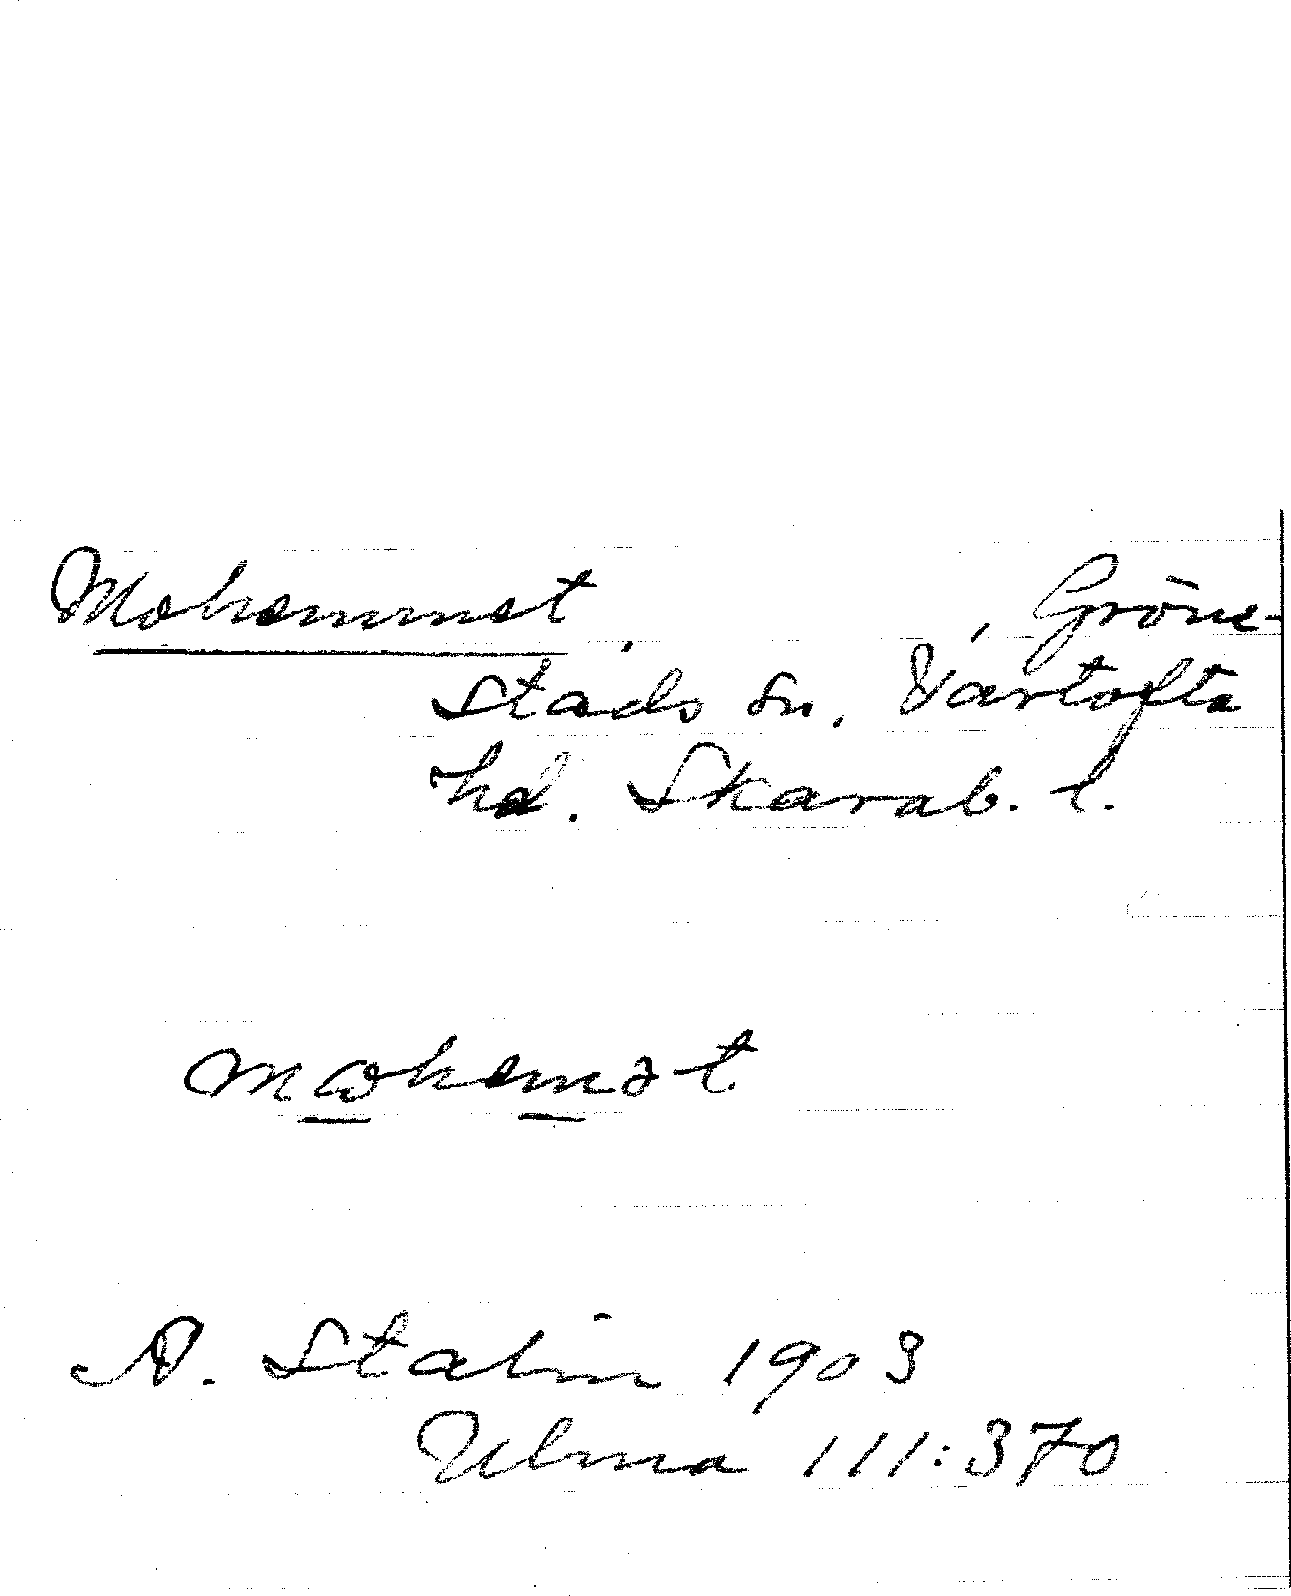 Mohemmet, Gröne-
stads sn. Vartofta
hd. Skarab. l.
mωhemət
A. Stalin 1903
Ulma 111:370